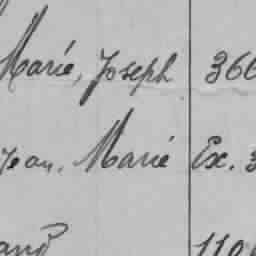 Marié, Joseph 366
Jean, Marié Ex. 3
and 110